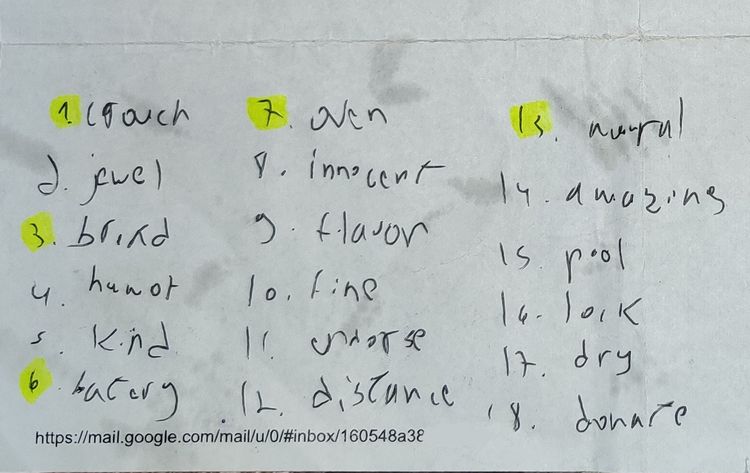 1. crouch
2. jewel
3.
4. humor
5. kind
6. batery
7. oven
8. innocent
9. flavor
10. fine
11. endorse
12. distance
13.
14. amazing
15. pool
16. lock
17. dry
18. donate
https://mail.google.com/mail/u/0/#inbox/160548a38